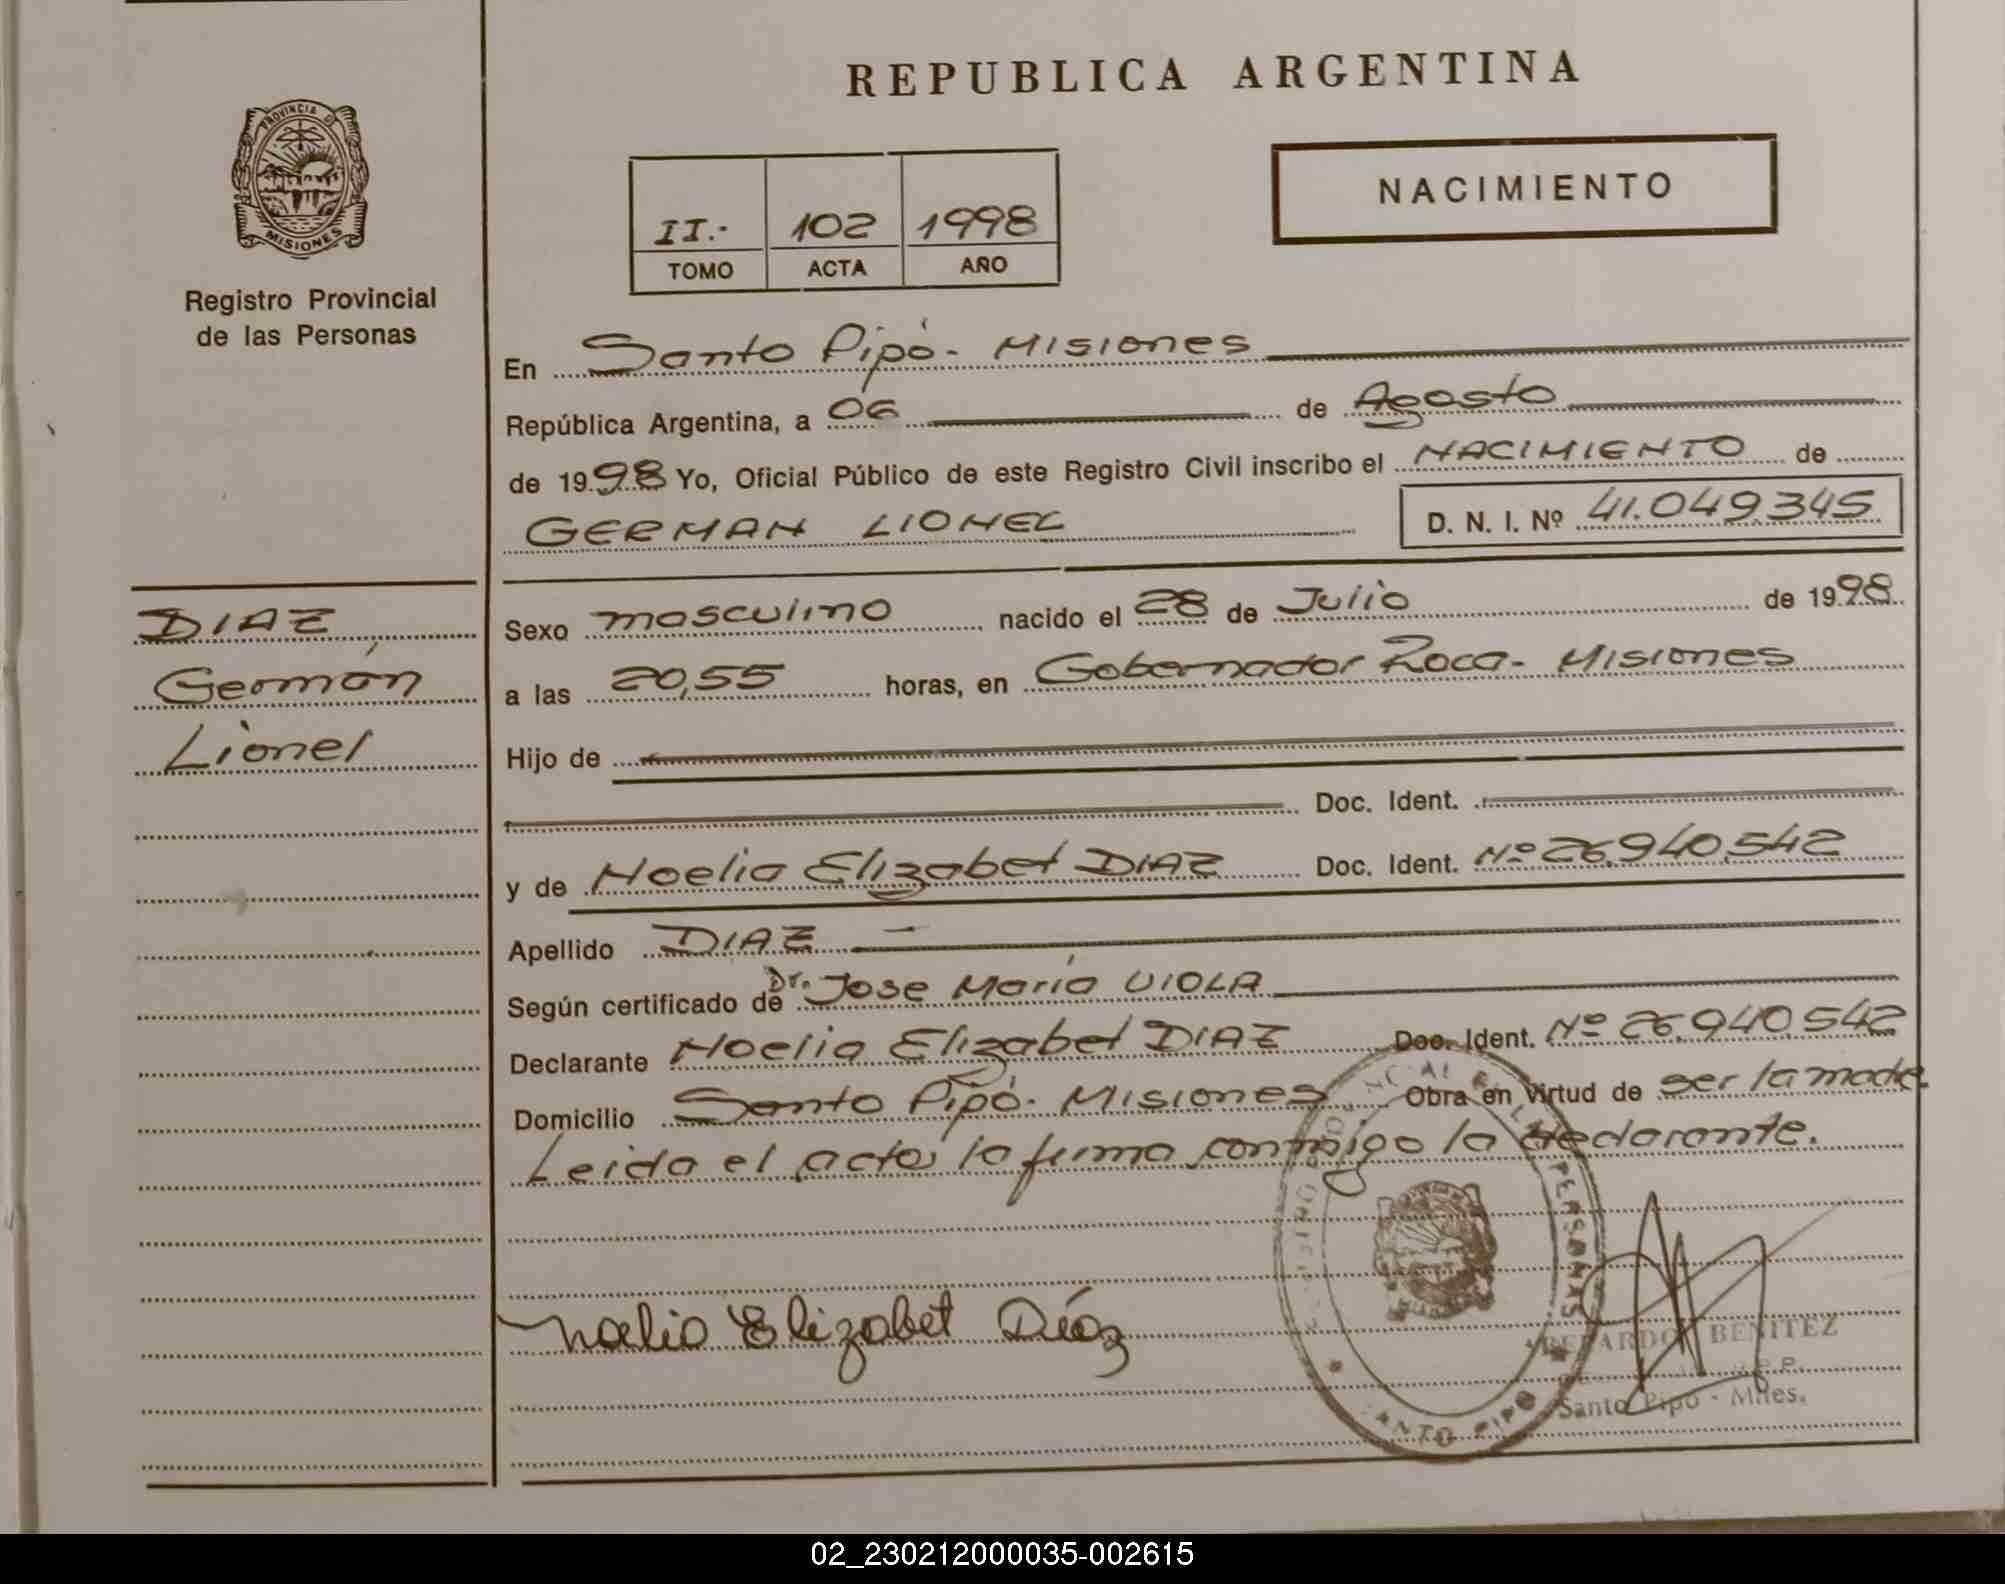 REPUBLICA ARGENTINA
PROVINCIA DE
MISIONES
Registro Provincial
de las Personas
NACIMIENTO
II.- 102 1998
TOMO ACTA AÑO
En Santo Pipó - Misiones
República Argentina, a 06 de Agosto
de 1998 Yo, Oficial Público de este Registro Civil inscribo el NACIMIENTO de
GERMAN LIONEL D. N. I. Nº 41.049.345
DIAZ,
Germán
Lionel
Sexo masculino nacido el 28 de Julio de 1998
a las 20,55 horas, en Gobernador Roca - Misiones
Hijo de
Doc. Ident.
y de Noelia Elizabet DIAZ Doc. Ident. Nº 26.940.542
Apellido DIAZ -
Según certificado de Dr. Jose María VIOLA
Declarante Noelia Elizabet DIAZ Doc. Ident. Nº 26.940.542
Domicilio Santo Pipó - Misiones Obra en Virtud de ser la madre
Leida el acta, la firma conmigo la declarante.
Noelia Elizabet Díaz
PERSONAS
SANTO PIPO
BENITEZ
Santo Pipó - Mnes.
02_230212000035-002615